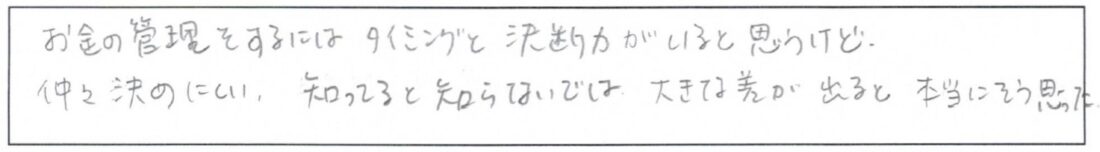 お金の管理をするには タイミングと 決断力がいると思うけど.
仲々決めにくい. 知ってると知らないでは 大きな差が出ると 本当にそう思った.